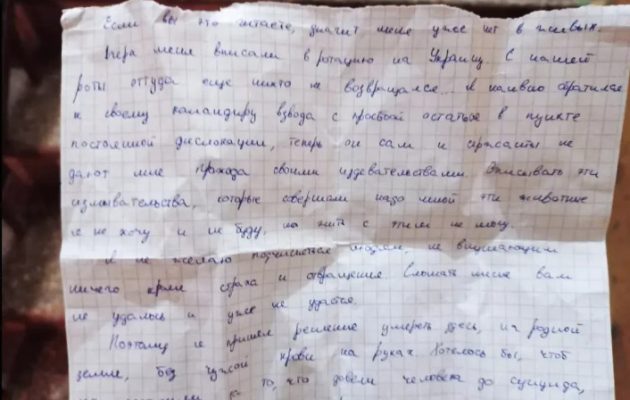 Если вы это читаете, значит меня уже нет в живых.
Вчера меня вписали в ротацию на Украину. С нашей
роты оттуда еще никто не возвращался... Я наивно обратился
к своему командиру взвода с просьбой остаться в пункте
постоянной дислокации, теперь он сам и сержанты не
дают мне прохода своими издевательствами. Описывать эти
издевательства, которые совершали надо мной эти животные
я не хочу и не буду, но жить с этим не могу.
Я не желаю подчиняться людям не внушающим
ничего кроме страха и отвращения. Сломать меня вам
не удалось и уже не удастся.
Поэтому я принял решение умереть здесь, на родной
земле, без чужой крови на руках. Хотелось бы, чтоб
то, что довели человека до суицида,